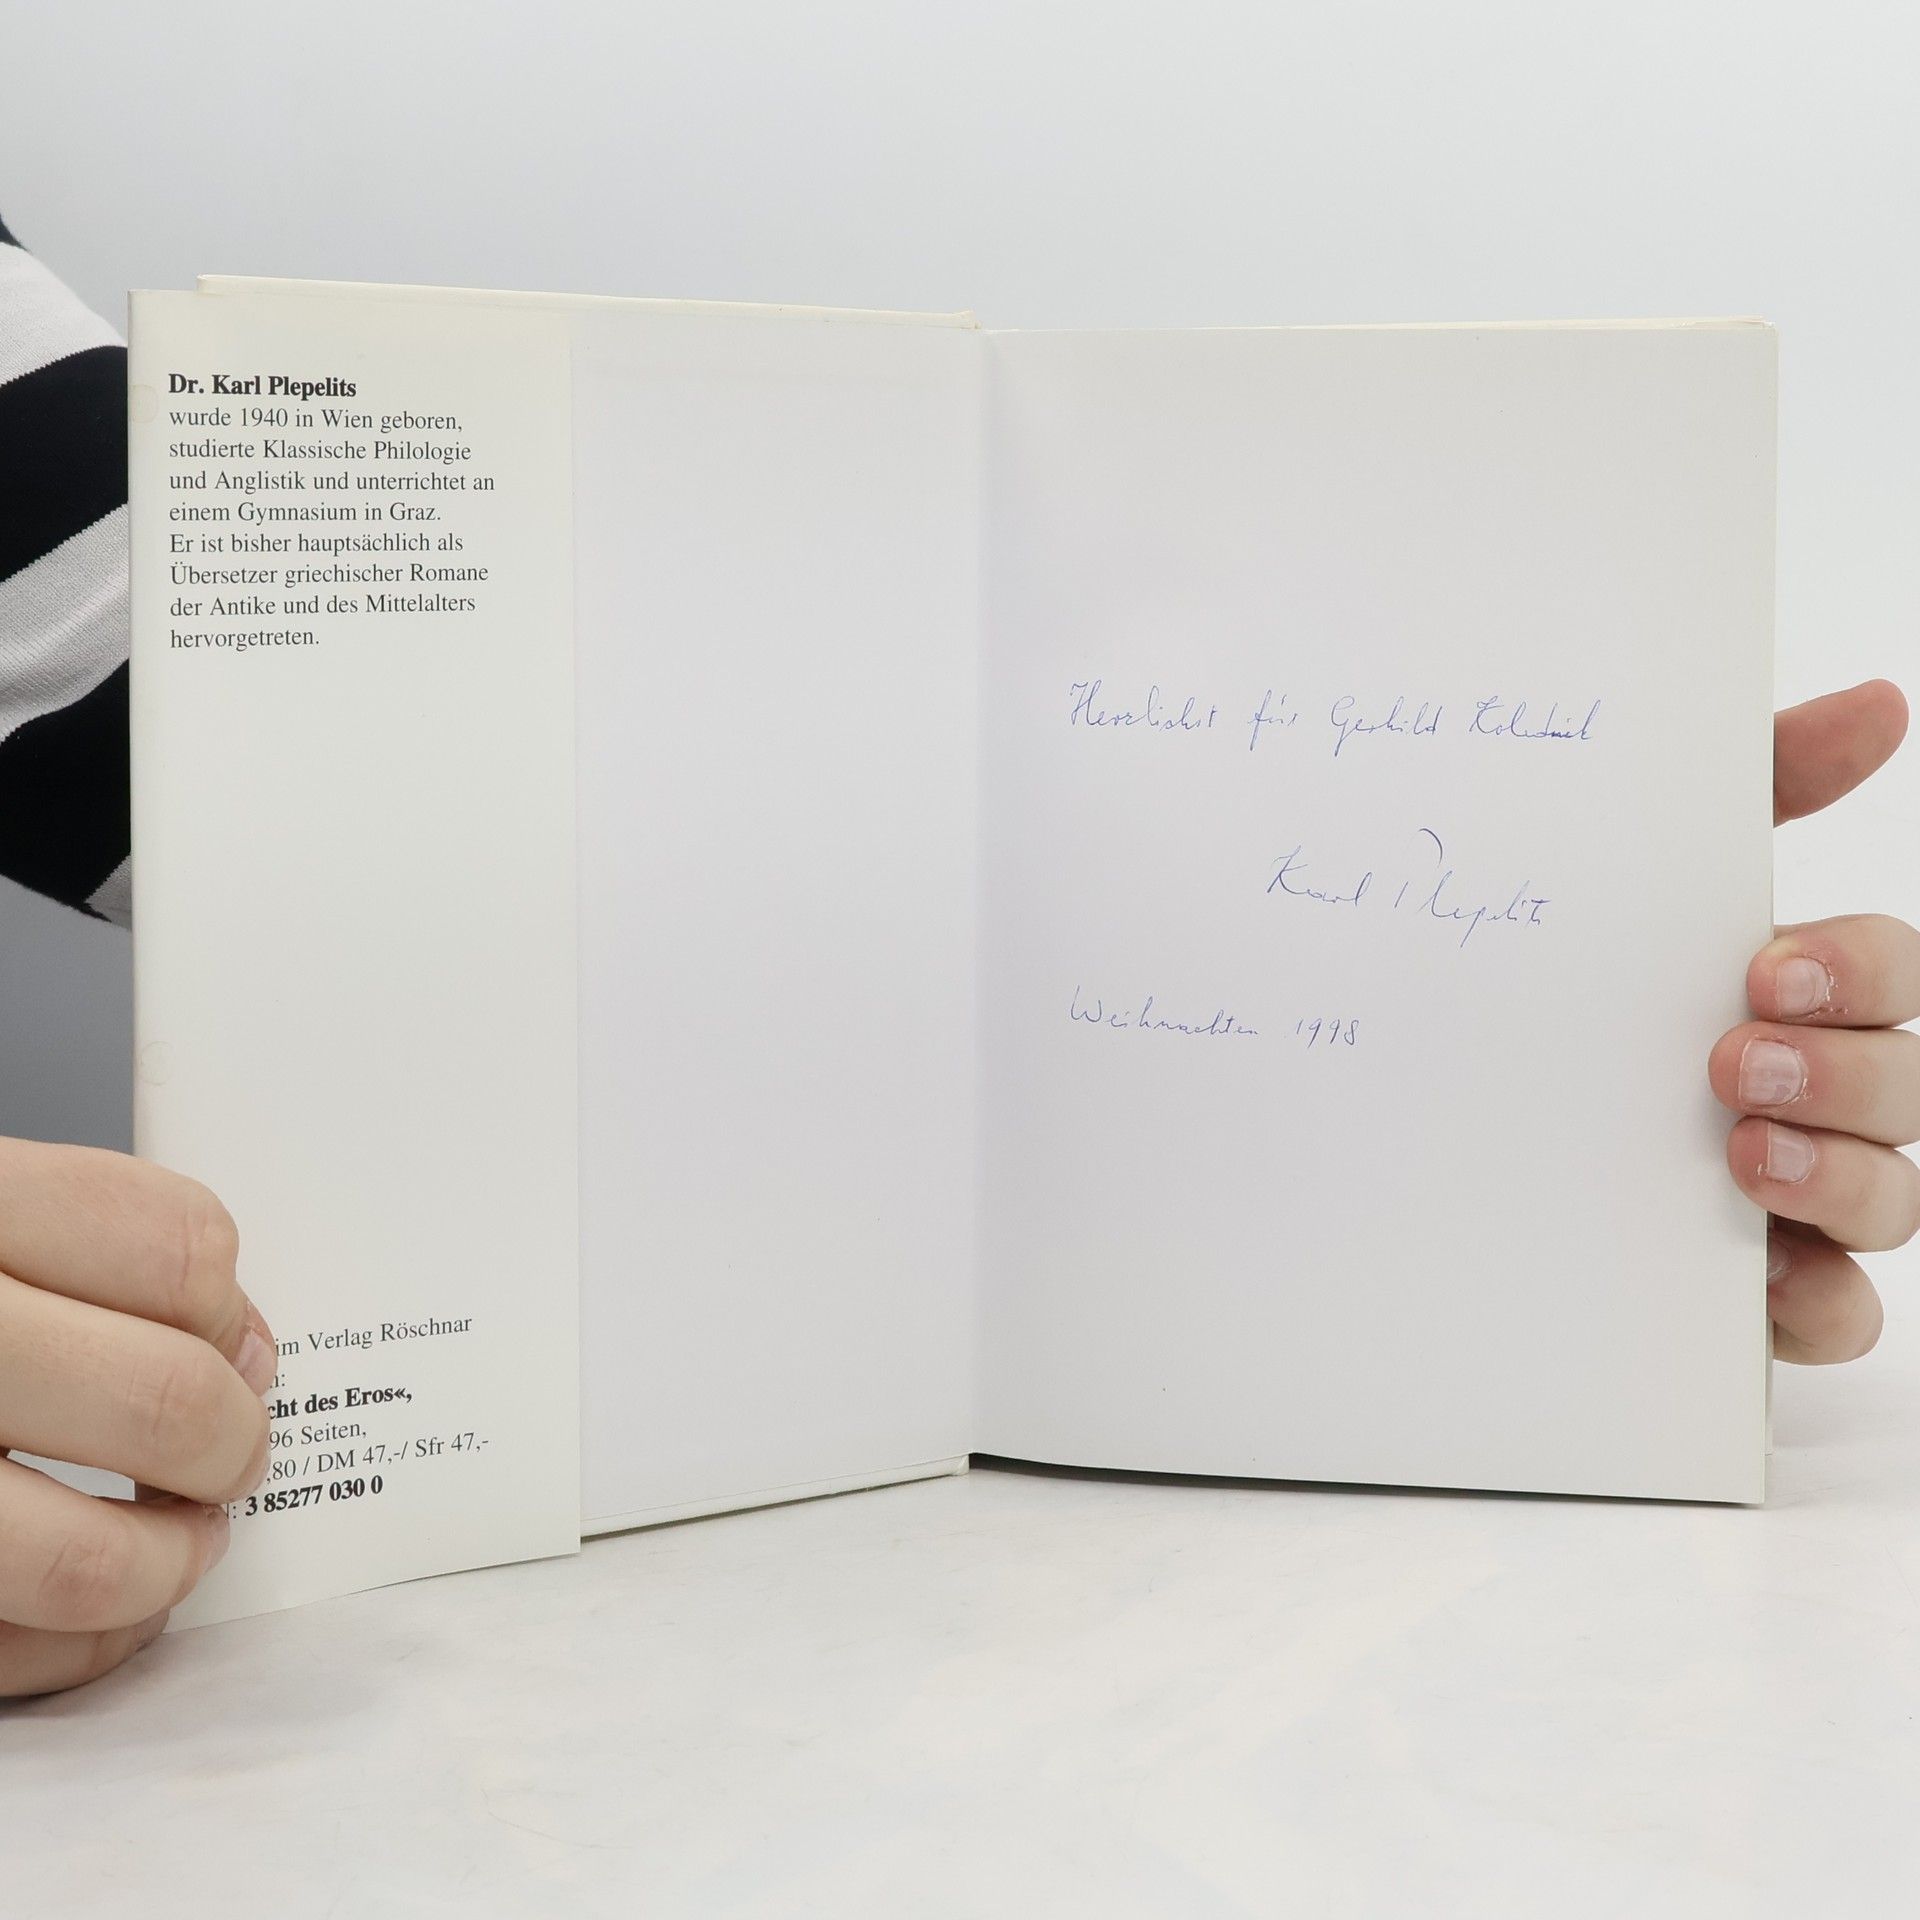 Dr. Karl Plepelits
wurde 1940 in Wien geboren,
studierte Klassische Philologie
und Anglistik und unterrichtet an
einem Gymnasium in Graz.
Er ist bisher hauptsächlich als
Übersetzer griechischer Romane
der Antike und des Mittelalters
hervorgetreten.
im Verlag Röschnar
des Eros«,
96 Seiten,
,80 / DM 47,-/ Sfr 47,-
3 85277 030 0
Herzlichst für Gerhild
Karl Plepelits
Weihnachten 1998